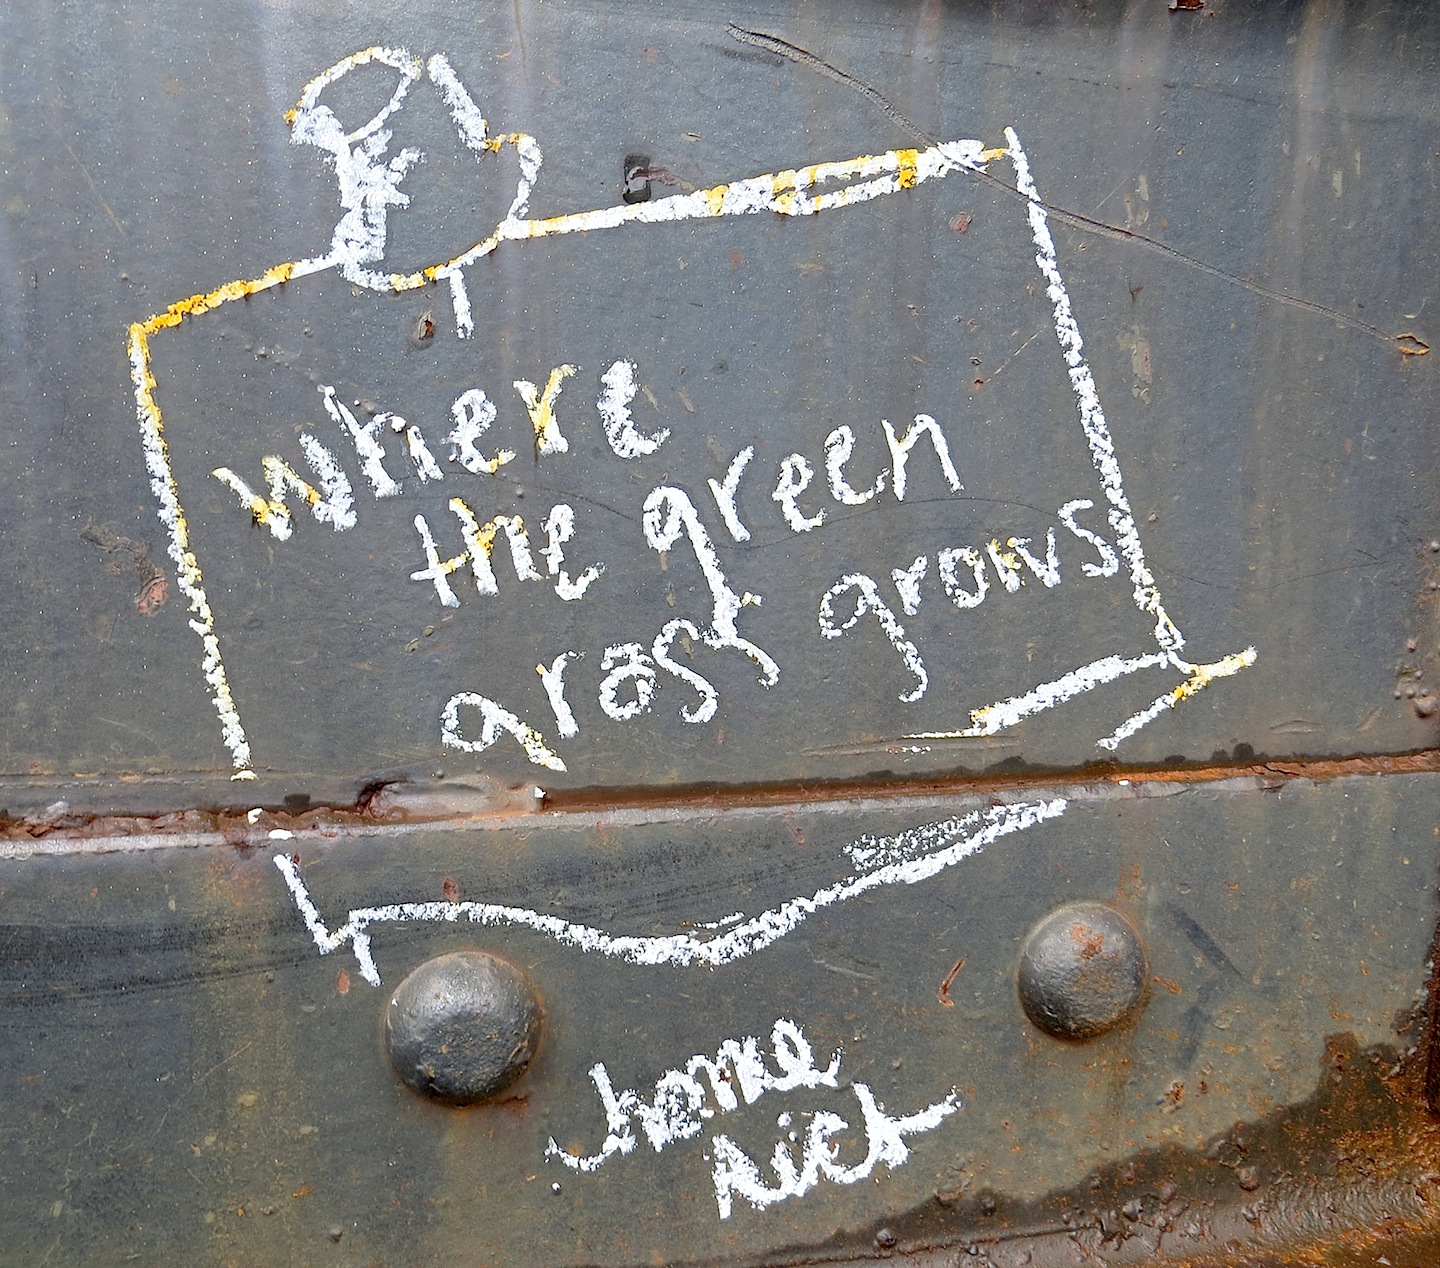 where
the green
grass grows
home
sick